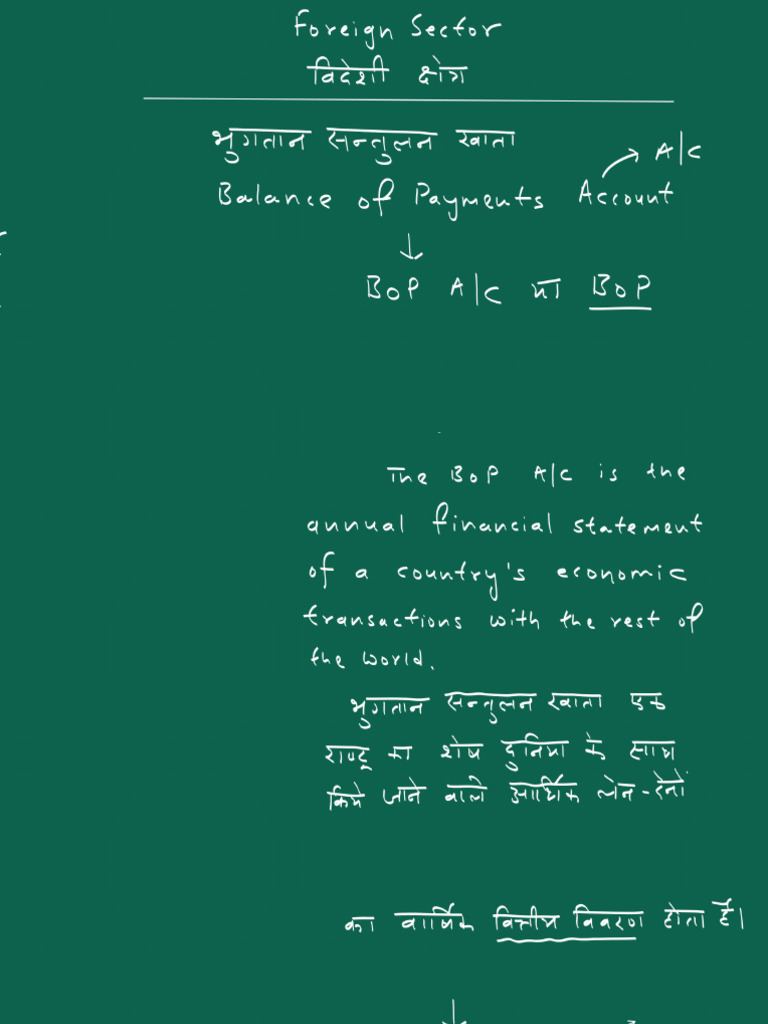 Foreign Sector
विदेशी क्षेत्र
भुगतान सन्तुलन खाता
A/C
Balance of Payments Account
BOP A/C या BOP
The BOP A/C is the
annual financial statement
of a country's economic
transactions with the rest of
the world.
भुगतान सन्तुलन खाता एक
राष्ट्र का शेष दुनिया के साथ
किये जाने वाले आर्थिक लेन-देनों
का वार्षिक वित्तीय विवरण होता है।